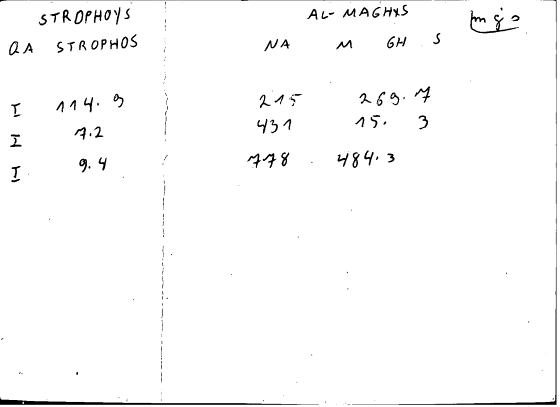 STROPHOYS AL-MAGHXS mgs
QA STROPHOS NA M GH S
I 114.9 215 269.7
I 7.2 431 15.3
I 9.4 778 484.3